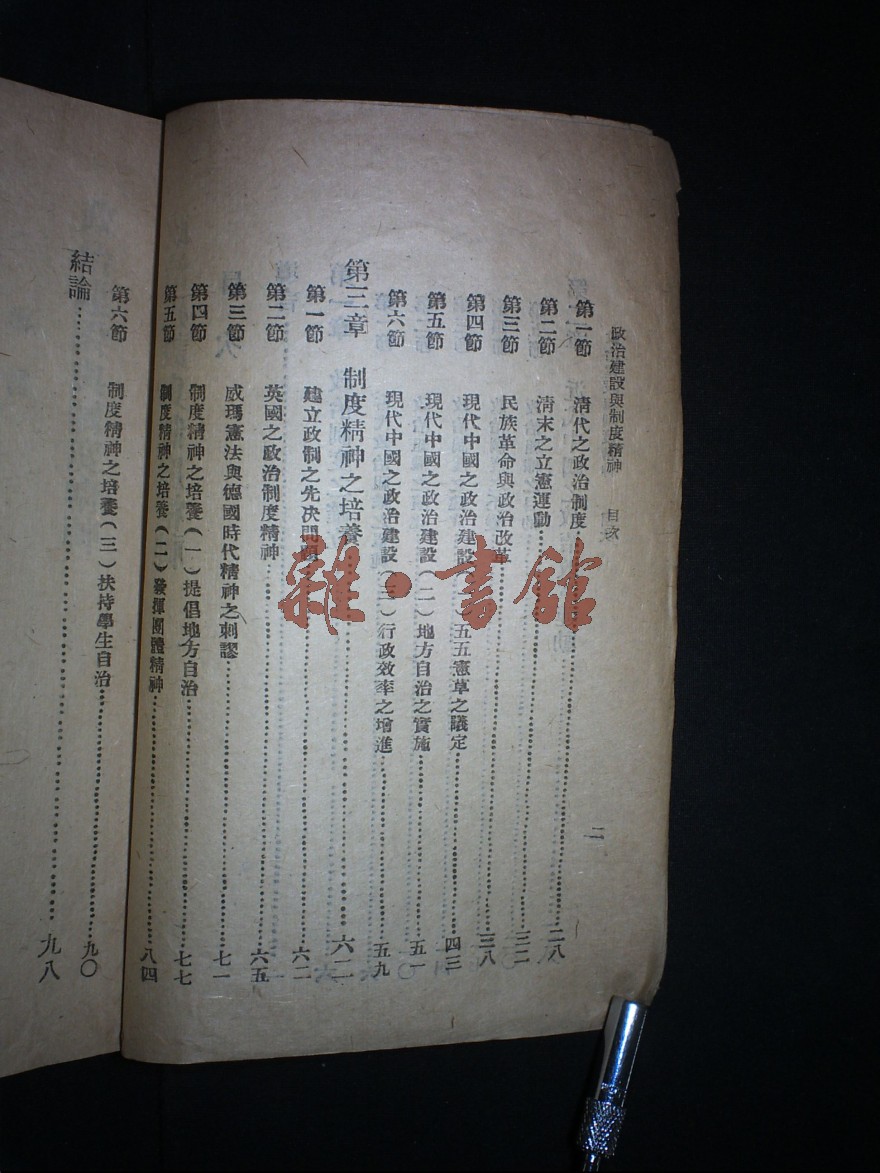 政治建設與制度精神 目次 二
第一節 清代之政治制度……二八
第二節 清末之立憲運動……三二
第三節 民族革命與政治改革……三八
第四節 現代中國之政治建設(一)五五憲草之議定……四三
第五節 現代中國之政治建設(二)地方自治之實施……五一
第六節 現代中國之政治建設(三)行政效率之增進……五九
第三章 制度精神之培養……六二
第一節 建立政制之先決問題……六二
第二節 英國之政治制度精神……六五
第三節 威瑪憲法與德國時代精神之刺謬……七一
第四節 制度精神之培養(一)提倡地方自治……七七
第五節 制度精神之培養(二)發揮團體精神……八四
第六節 制度精神之培養(三)扶持學生自治……九〇
結論……九八
雜·書館